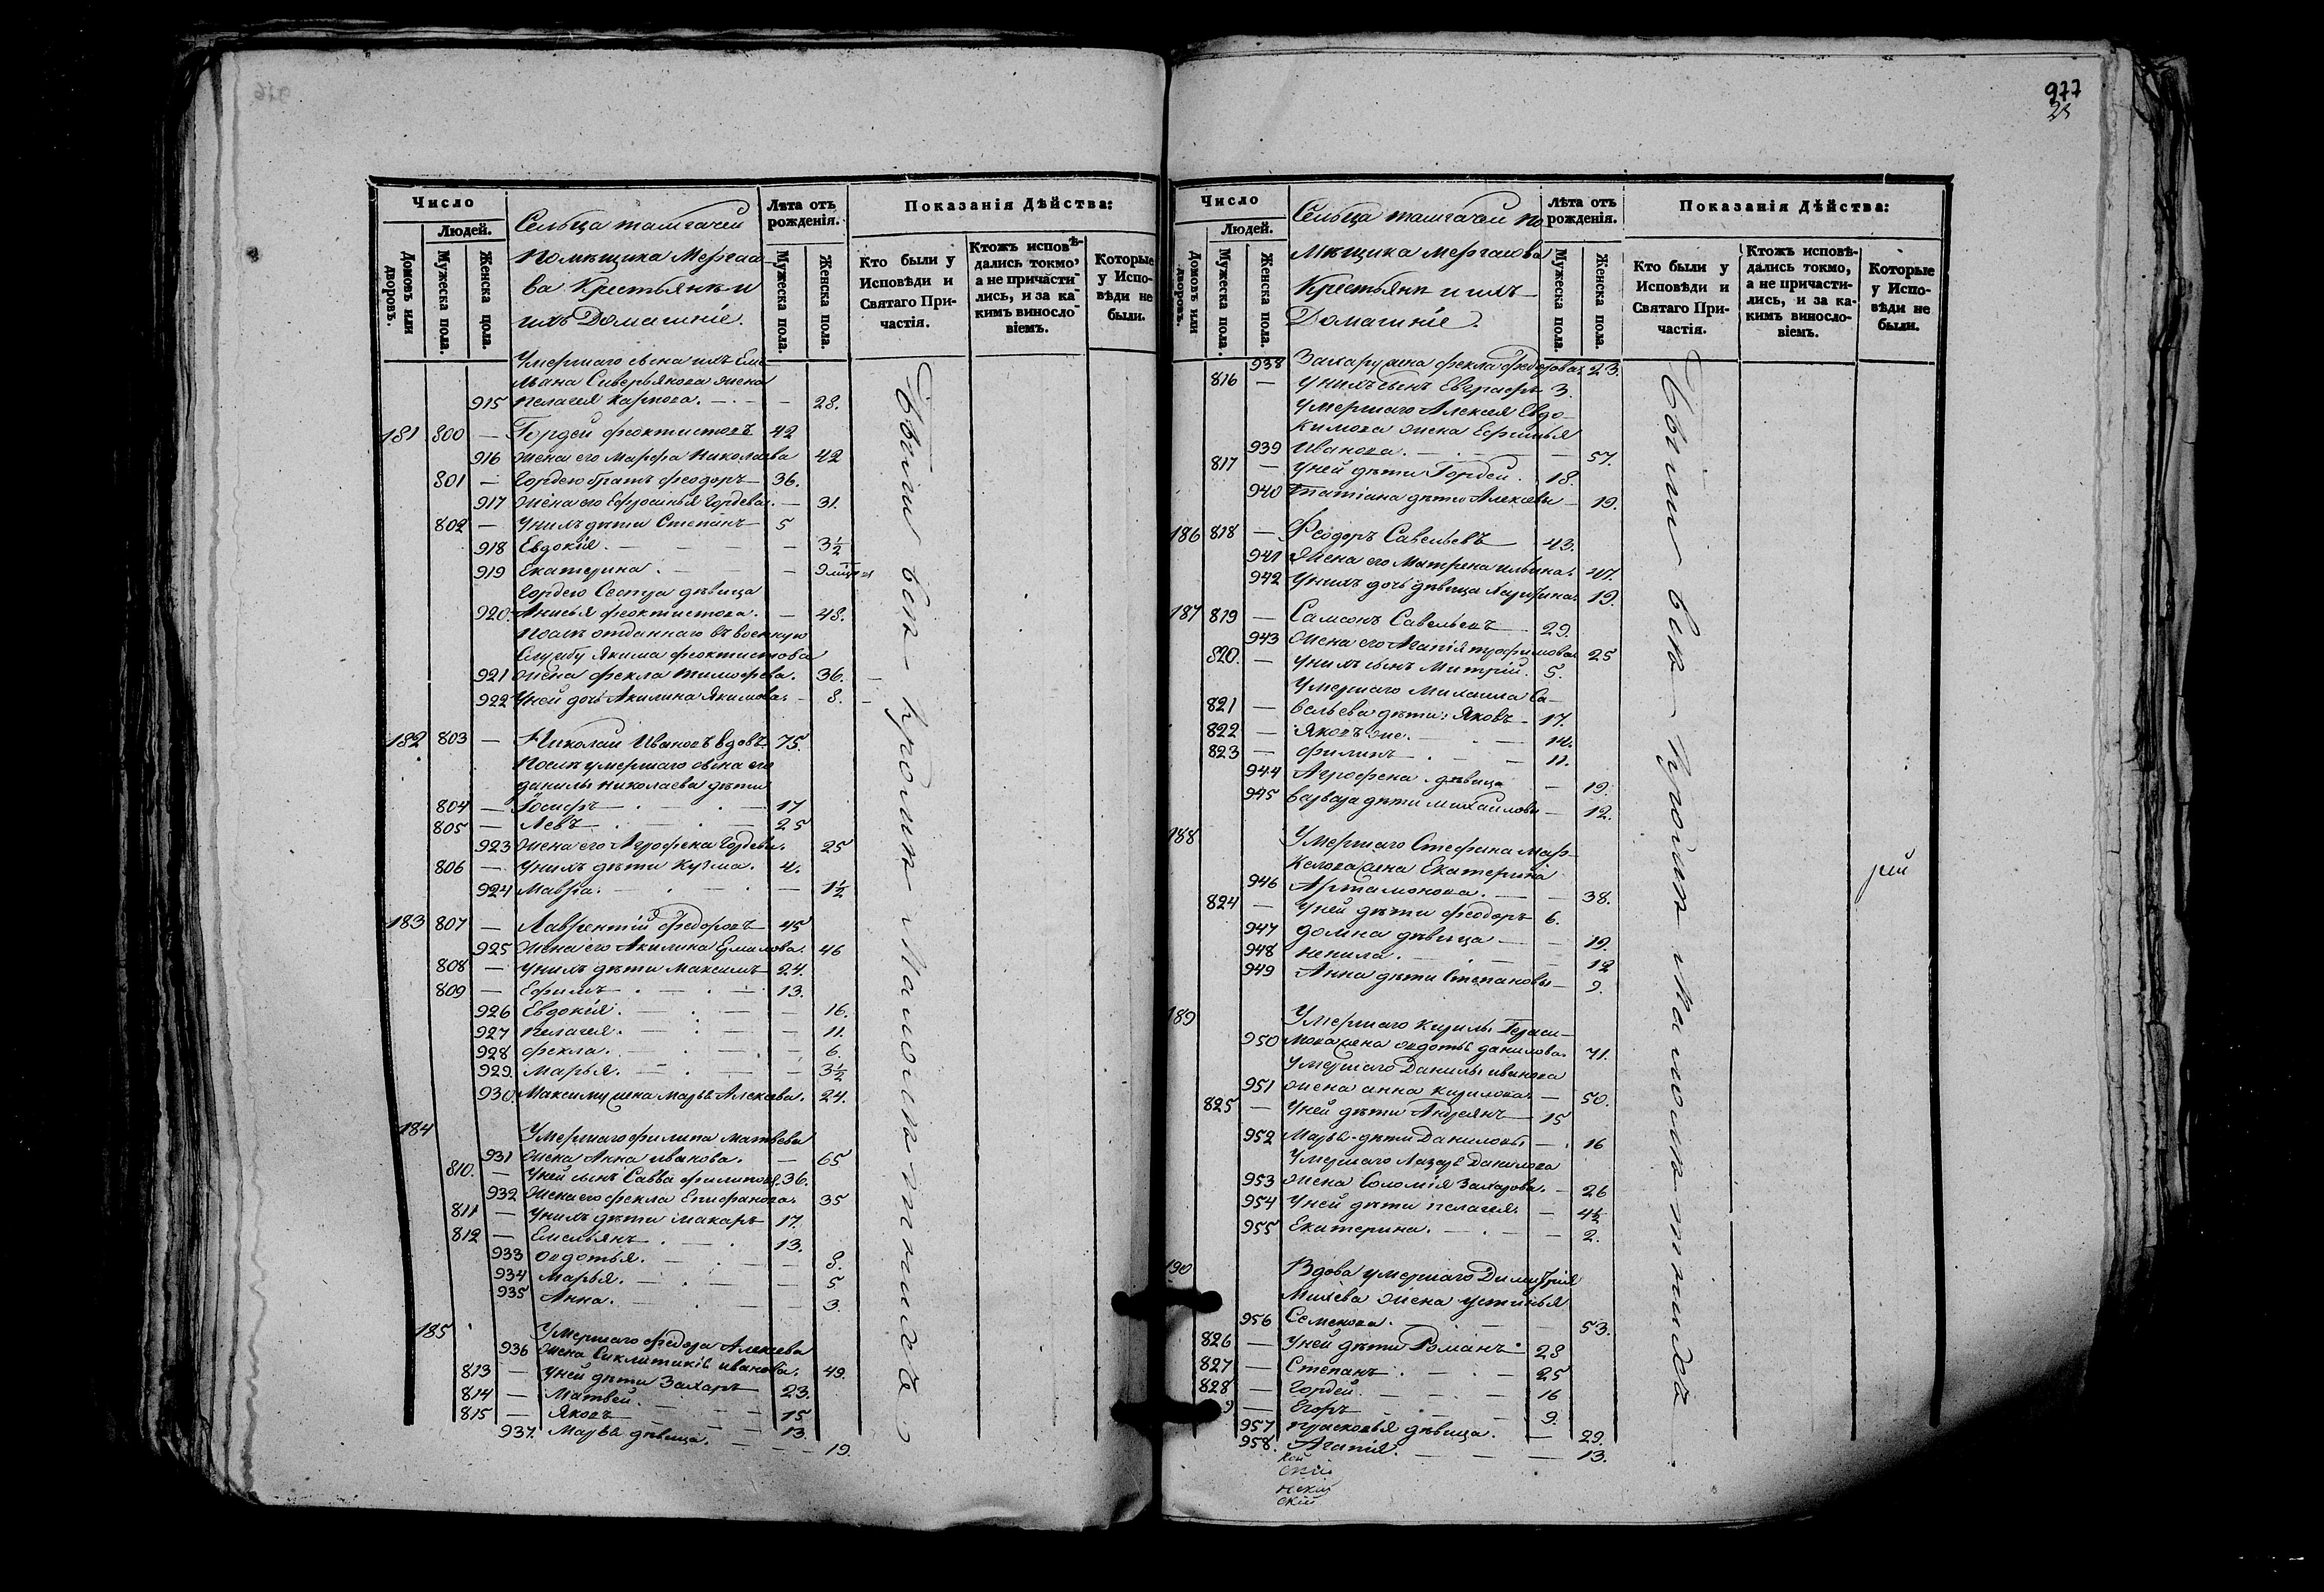 977
25
Число
Людей.
Домовъ или дворовъ.
Мужеска пола.
Женска пола.
Сельца тамгачей
помѣщика Мергасо
ва Крестьяне и
ихъ Домашніе.
Лѣта отъ рожденія.
Мужеска пола.
Женска пола.
Показанія Дѣйства:
Кто были у Исповѣди и Святаго Причастія.
Ктожъ исповѣдались токмо, а не причастились, и за какимъ винословіемъ.
Которые у Исповѣди не были.
Умершаго сына ихъ Еме
льяна Сиверьянова жена
915 Пелагея Карпова. — 28.
181 800 — Гордей Феоктистовъ 42
916 Жена его Марфа Николаева 42
801 — Гордею братъ Феодоръ — 36.
917 Жена его Ефросинья Гордеева. — 31.
802 — У нихъ дѣти Степанъ — 5
918 Евдокія. — 3½
919 Екатерина. —
Гордею Сестра дѣвица
920. Анисья Феоктистова. — 48.
Послѣ отданнаго въ военную
Службу Якима Феоктистова
921 жена Фекла Тимофеева. 36.
922 У ней дочь Акилина Якимова. — 8.
182 803 — Николай Ивановъ вдовъ 75.
Послѣ умершаго сына его
Данилы Николаева дѣти
804 — Іосифъ — 17
805 — Левъ — 25
923 Жена его Агрофена Гордеева. 25
806 — У нихъ дѣти Кузма. 4.
924 Мавра. — 1½
183 807 — Лаврентій Федоровъ 45
925 Жена его Акилина Ермолова. 46
808 — У нихъ дѣти Максимъ 24.
809 — Ефимъ — 13.
926 Евдокія. — 16.
927 Пелагея. — 11.
928 Фекла. — 6.
929. Марья. — 3½
930. Максиму жена Марья Алексѣева. 24.
184 Умершаго Филипа Матвѣева
931 жена Анна Иванова. — 65
810. — У ней сынъ Савва Филиповъ. 36.
932 Жена его Фекла Епифанова. 35
811 — У нихъ дѣти Макаръ 17.
812 — Емельянъ — 13.
933 Овдотья. — 8.
934 Марья. — 5
935 Анна. — 3.
185 Умершаго Федора Алексѣева
936 жена Сиклитикія Иванова. 49.
813 — У ней дѣти Захаръ 23.
814 — Матвей. — 15
815 — Яковъ — 13.
937. Марья дѣвица. — 19.
Число
Людей.
Домовъ или дворовъ.
Мужеска пола.
Женска пола.
Сельца тамгачей по
мѣщика Мергасова
Крестьяне и ихъ
Домашніе.
Лѣта отъ рожденія.
Мужеска пола.
Женска пола.
Показанія Дѣйства:
Кто были у Исповѣди и Святаго Причастія.
Ктожъ исповѣдались токмо, а не причастились, и за какимъ винословіемъ.
Которые у Исповѣди не были.
938 Захару жена Фекла Федорова. 23.
816 — У нихъ сынъ Евграфъ 3.
Умершаго Алексѣя Евдо
кимова жена Ефимья
939 Иванова. — 57.
817 — У ней дѣти Гордей. 18.
940 Татіана дѣти Алексѣевы — 19.
186 818 — Феодоръ Савельевъ 43.
941 Жена его Матрена Ильина. 47.
942 У нихъ дочь дѣвица 19.
187 819 — Самсонъ Савельевъ 29.
943 Жена его Агапія Трофимова 25
820. — У нихъ сынъ Митрій. 5.
Умершаго Михаила Са—
вельева дѣти: Яковъ — 17.
821 —
822 — Яковъ же. — 14.
823 — Филипъ — 11.
944 Агрофена дѣвица — 19.
945 Варвара дѣти Михайловы — 12.
188 Умершаго Стефана Мар—
келова жена Екатерина
946 Артамонова. — 38.
824 — У ней дѣти Феодоръ 6.
947 Домна дѣвица — 19.
948 Ненила. — 12
949 Анна дѣти Степановы — 9.
189 Умершаго Кирилы Гераси—
950 мова жена Овдотья Данилова. 71.
Умершаго Данилы Иванова
951 жена Анна Кирилова. — 50.
825 — У ней дѣти Андреянъ — 15
952 Марья дѣти Даниловы — 16
Умершаго Лазаря Данилова
953 жена Соломія Захарова. — 26
954 У ней дѣти Пелагея. — 4½
955 Екатерина. — 2.
190 Вдова умершаго Димитрія
Михѣева жена Устинья
956 Семенова. — 53.
826 — У ней дѣти Романъ 28
827 — Степанъ — 25
828 — Гордей — 16
9 — Егоръ — 9.
957 Прасковья дѣвица. — 29.
958. Агапія. — 13.
кой
скій
нскій
скій